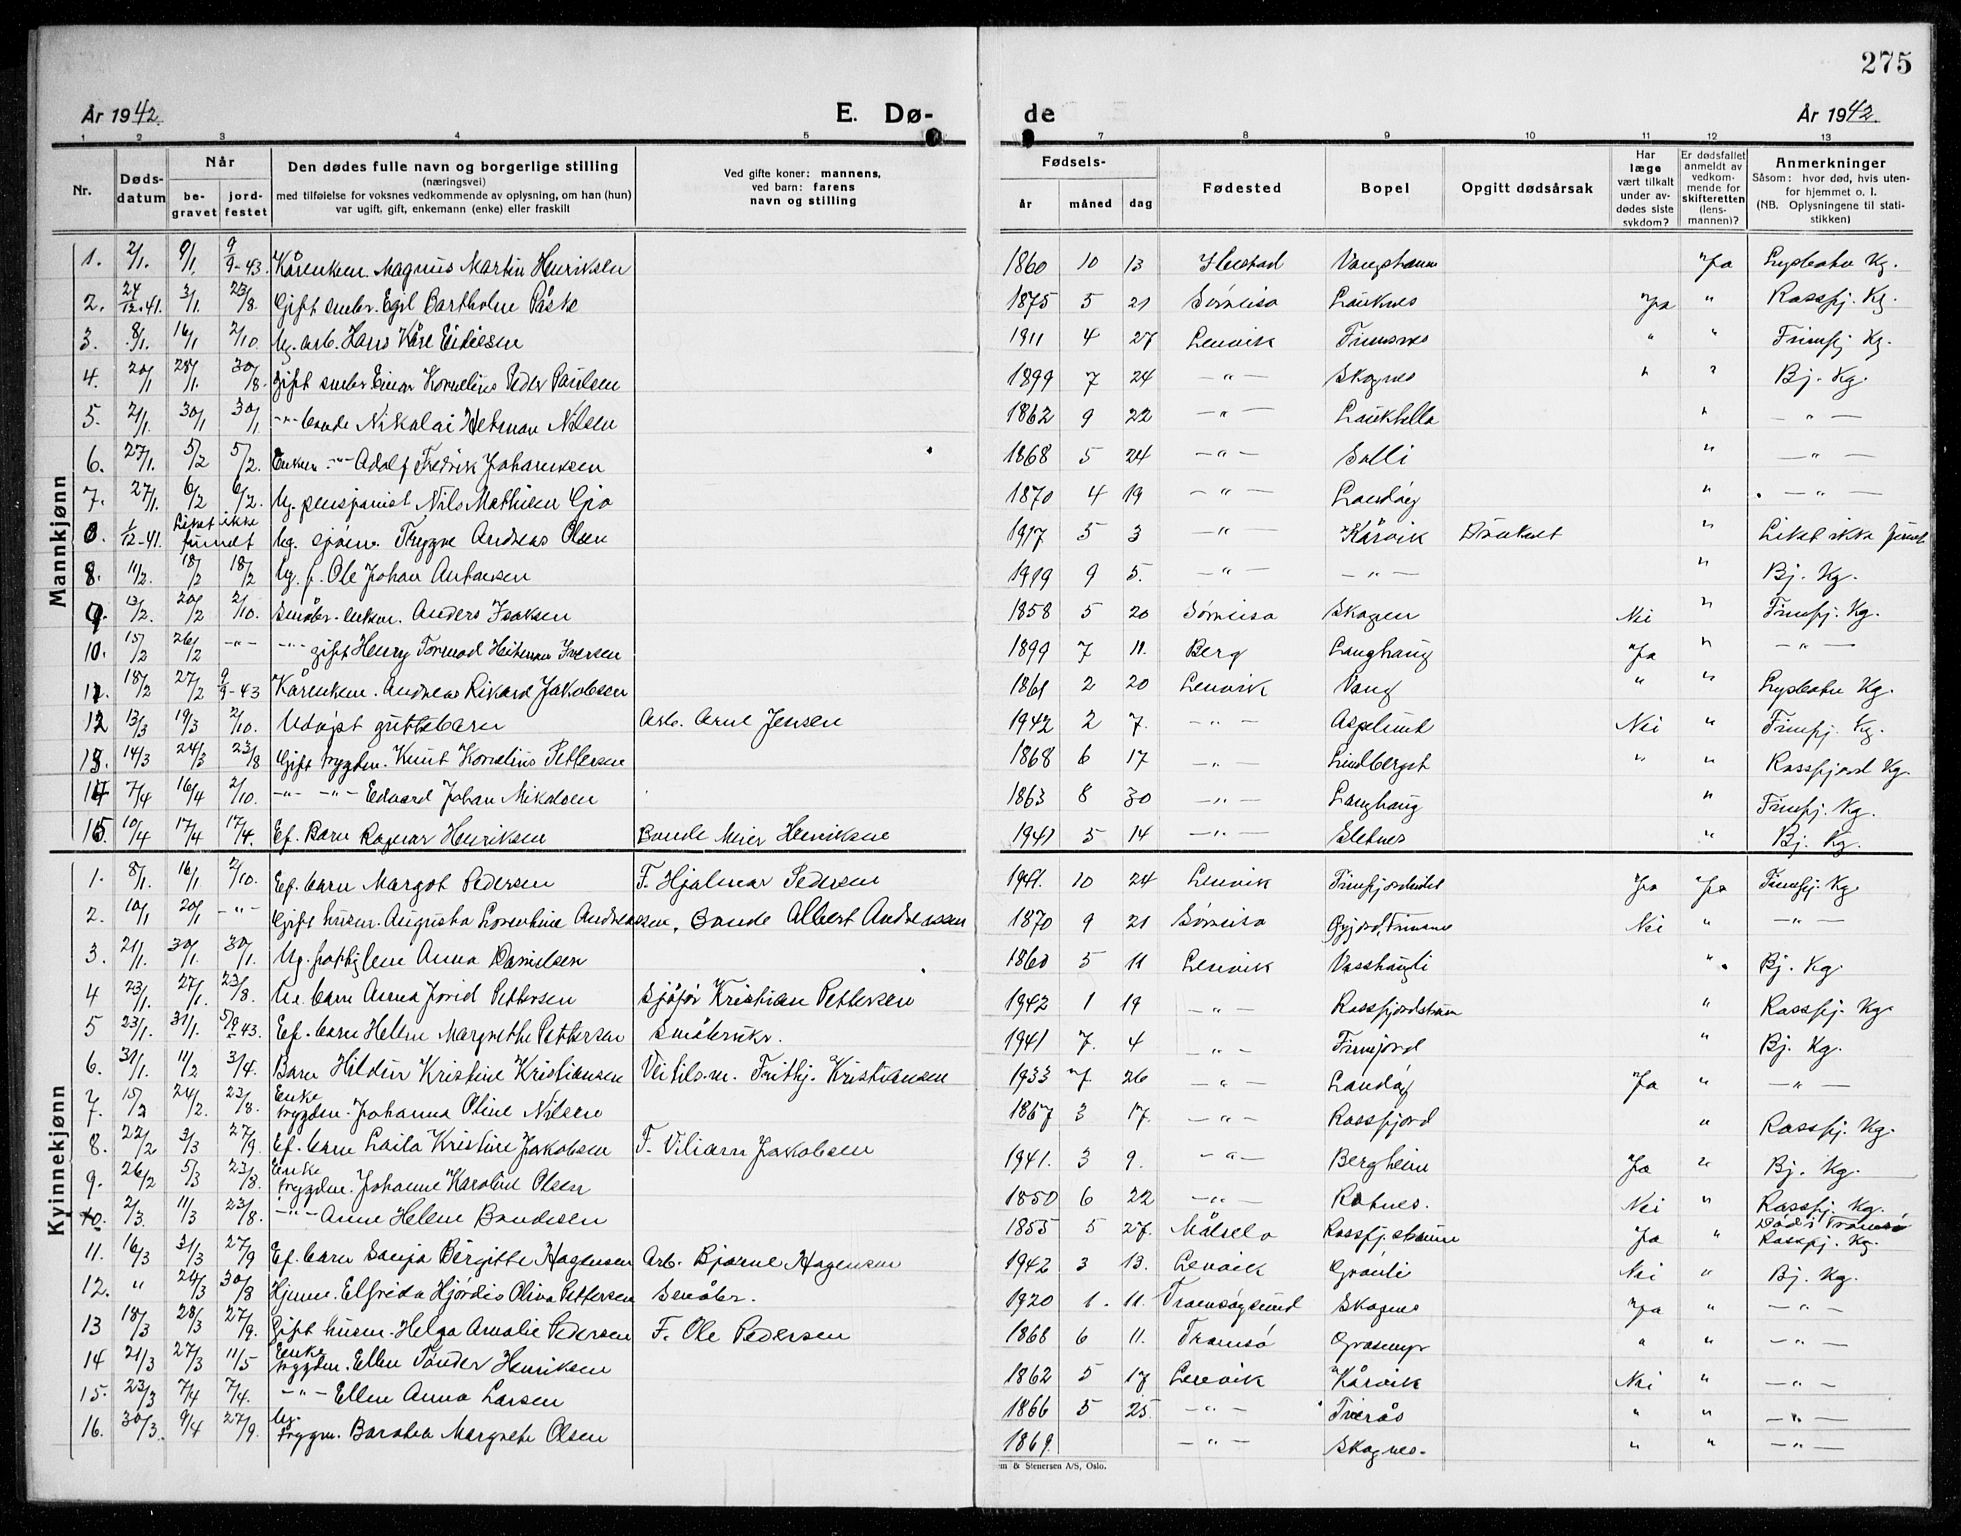 275
År 1942.
E. Dø-
de
År 1942.
1 2 3 4 5 7 8 9 10 11 12 13
Nr.
Døds-
datum
Når
be-
gravet
jord-
festet
Den dødes fulle navn og borgerlige stilling
(næringsvei)
med tilføielse for voksnes vedkommende av oplysning, om han (hun)
var ugift, gift, enkemann (enke) eller fraskilt
Ved gifte koner: mannens,
ved barn: farens
navn og stilling
Fødsels-
år måned dag
Fødested
Bopel
Opgitt dødsårsak
Har
læge
vært tilkalt
under av-
dødes siste
sykdom?
Er dødsfallet
anmeldt av
vedkom-
mende for
skifteretten
(lens-
mannen)?
Anmerkninger
Såsom: hvor død, hvis uten-
for hjemmet o. l.
(NB. Oplysningene til stati-
stikken)
Mannkjønn
1. 2/1. 9/1. 9/9-43 Kårenkem. Magnus Martin Henriksen 1860 10 13 Vangshamn Ja Kg.
2. 24/12-41. 3/1. 23/8. Gift småbr. Egil Bartholm 1875 5 21 Sørreisa Lauknes Ja " Rossfj. Kg.
3. 8/1. 16/1 2/10 Ug. arb. Hans Kåre 1911 4 27 Lenvik Finnsnes " " Finnfj Kg.
4. 20/1 28/1. 30/8. Gift småbr Einar Kornelius Peder Paulsen 1899 7 24 — " — Skognes " " Bj. Kg.
5. 21/1. 30/1 30/1 — " — bonde Nikolai Hetman Nilsen 1862 9 22 — " — Laukhella " — " —
6. 27/1. 5/2 5/2. Enkem. — " — Adolf Fredrik Johansen 1868 5 24 — " — Solli " — " —
7. 27/1. 6/2 6/2. Ug. pensjonist Nils Mathisen 1870 4 19 — " — " — " —
0. 1/12-41. Liket ikke funnet Ug. sjøm. Trygve Andreas Olsen 1917 5 3 — " — Kårvik Druknet " Liket ikke funnet
8. 11/2. 18/2 18/2 Ug. f. Ole Johan 1919 9 5. — " — — " — " Bj. Kg.
9. 13/2. 20/2 2/10. Småbr. enkem. Anders Isaksen 1858 5 20 Sørreisa Skogen Nei " Finnfj. Kg.
10. 15/2 26/2 — " — — " — gift Henry Tormod Iversen 1899 7 11. Berg Langhaug Ja " — " —
11. 18/2 27/2 9/9-43 Kårenkem. Andreas Rikard Jakobsen 1861 2 20 Lenvik Vang " " Kg.
12 13/3 19/3 2/10. Udøpt guttebarn Arb. Arne Jensen 1942 2 7. — " — Asplund Nei " Finnfj. Kg.
13. 14/3 24/3 23/8 Gift trygden. Knut Kornelius Pettersen 1868 6 17 — " — Lindberget " " Rossfjord Kg.
14 7/4 16/4 2/10. — " — — " — Edvard Johan Mikalsen 1863 8 30 — " — Langhaug " Finnfj. Kg.
15. 10/4 17/4 17/4. Ef. Barn Ragnar Henriksen Bonde Meier Henriksen 1941 5 14 — " — Sletnes " Bj. Kg.
Kvinnekjønn
1. 8/1. 16/1 2/10. Ef. barn Margot Pedersen F. Hjalmar Pedersen 1941. 10 24 Lenvik Ja Ja Finnfj. Kg.
2. 10/1 20/1 — " — Gift husm. Augusta Lorentine Andreassen, Bonde Albert Andreassen 1870 9 21 Sørreisa Nei " — " —
3. 21/1. 30/1. 30/1. Ug. Anna Danielsen 1860 5 11 Lenvik " Bj. Kg.
4 23/1. 27/1. 23/8. barn Anna Jorid Pettersen Sjåfør Kristian Pettersen 1942 1 19 — " — " Rossfj. Kg.
5 23/1. 31/1. 5/9 43. Ef. barn Helen Margrethe Pettersen Småbrukr. 1941 7. 4 — " — Finnfjord " Bj. Kg.
6. 31/1. 11/2 3/4. Barn Hildur Kristine Kristiansen Frithj. Kristiansen 1933 7. 26 — " — Ja " — " —
7. 15/2 24/2. 23/8. Enke trygden. Johanna Oline Nilsen 1867 3 17. — " — Rossfjord " Rossfj. Kg.
8. 22/2 3/3 27/9. Ef. barn Laila Kristine Jakobsen F. Viliam Jakobsen 1941. 3 9. — " — Bergheim Ja " Bj. Kg.
9. 26/2 5/3 23/8. Enke trygden. Johanne Karoline Olsen 1850 6 22 — " — Nei " Rossfj. Kg.
10. 2/3. 11/3 23/8. — " — Anne Helene 1855 5 27. Målselv Rossfj. straum Ja " Død i Tromsø Rossfj. Kg.
11. 16/3 31/3 27/9 Ef. barn Sonja Birgitte Hagensen Arb. Bjarne Hagensen 1942 3 13. Lenvik Grønli Nei " Bj. Kg.
12. " 24/3 30/8 Hjemm. Elfrida Hjørdis Oliva Pettersen Småbr. 1920 1. 11. Tromsøysund Skognes Ja " — " —
13 18/3 28/3 27/9. Gift husm. Helga Amalie Pedersen F. Ole Pedersen 1868 6 11. Tromsø Grasmyr " " — " —
14 21/3 27/3 11/5 Enke trygden. Ellen Tønder Henriksen 1862 5 17 Lenvik Kårvik Nei " — " —
15. 23/3 7/4 7/4. — " — Ellen Anna Larsen 1866 5 25 — " — Tverås " " — " —
16. 30/3. 9/4 27/9. Ug. trygm. Margrete Olsen 1869. — " — Skognes. " " — " —
m & Stenersen A/S, Oslo.